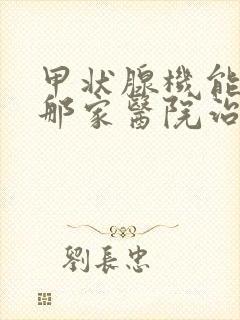 甲状腺機能
那家醫院治
劉長忠